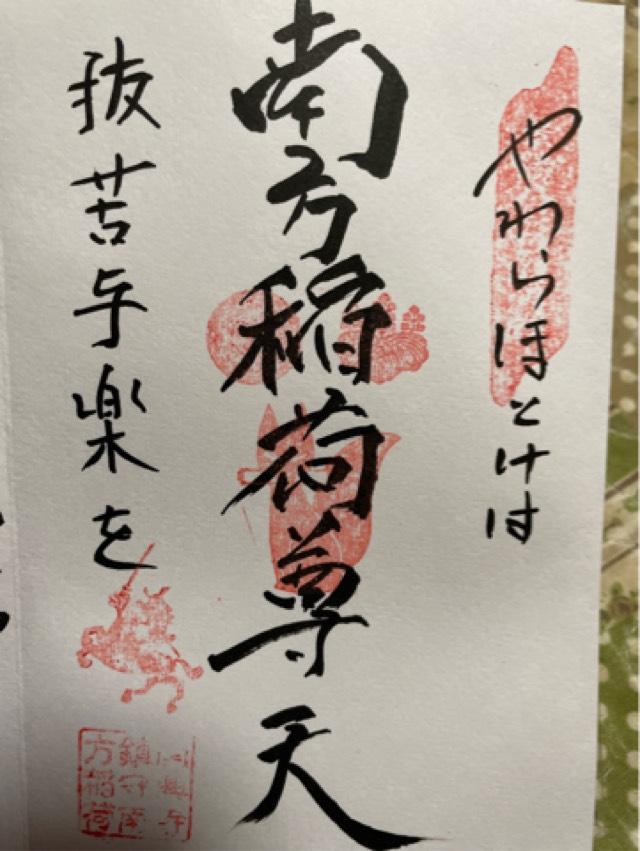 やわらほとけは
南方稲荷尊天
抜苦与楽を
鎮守南
方稲荷